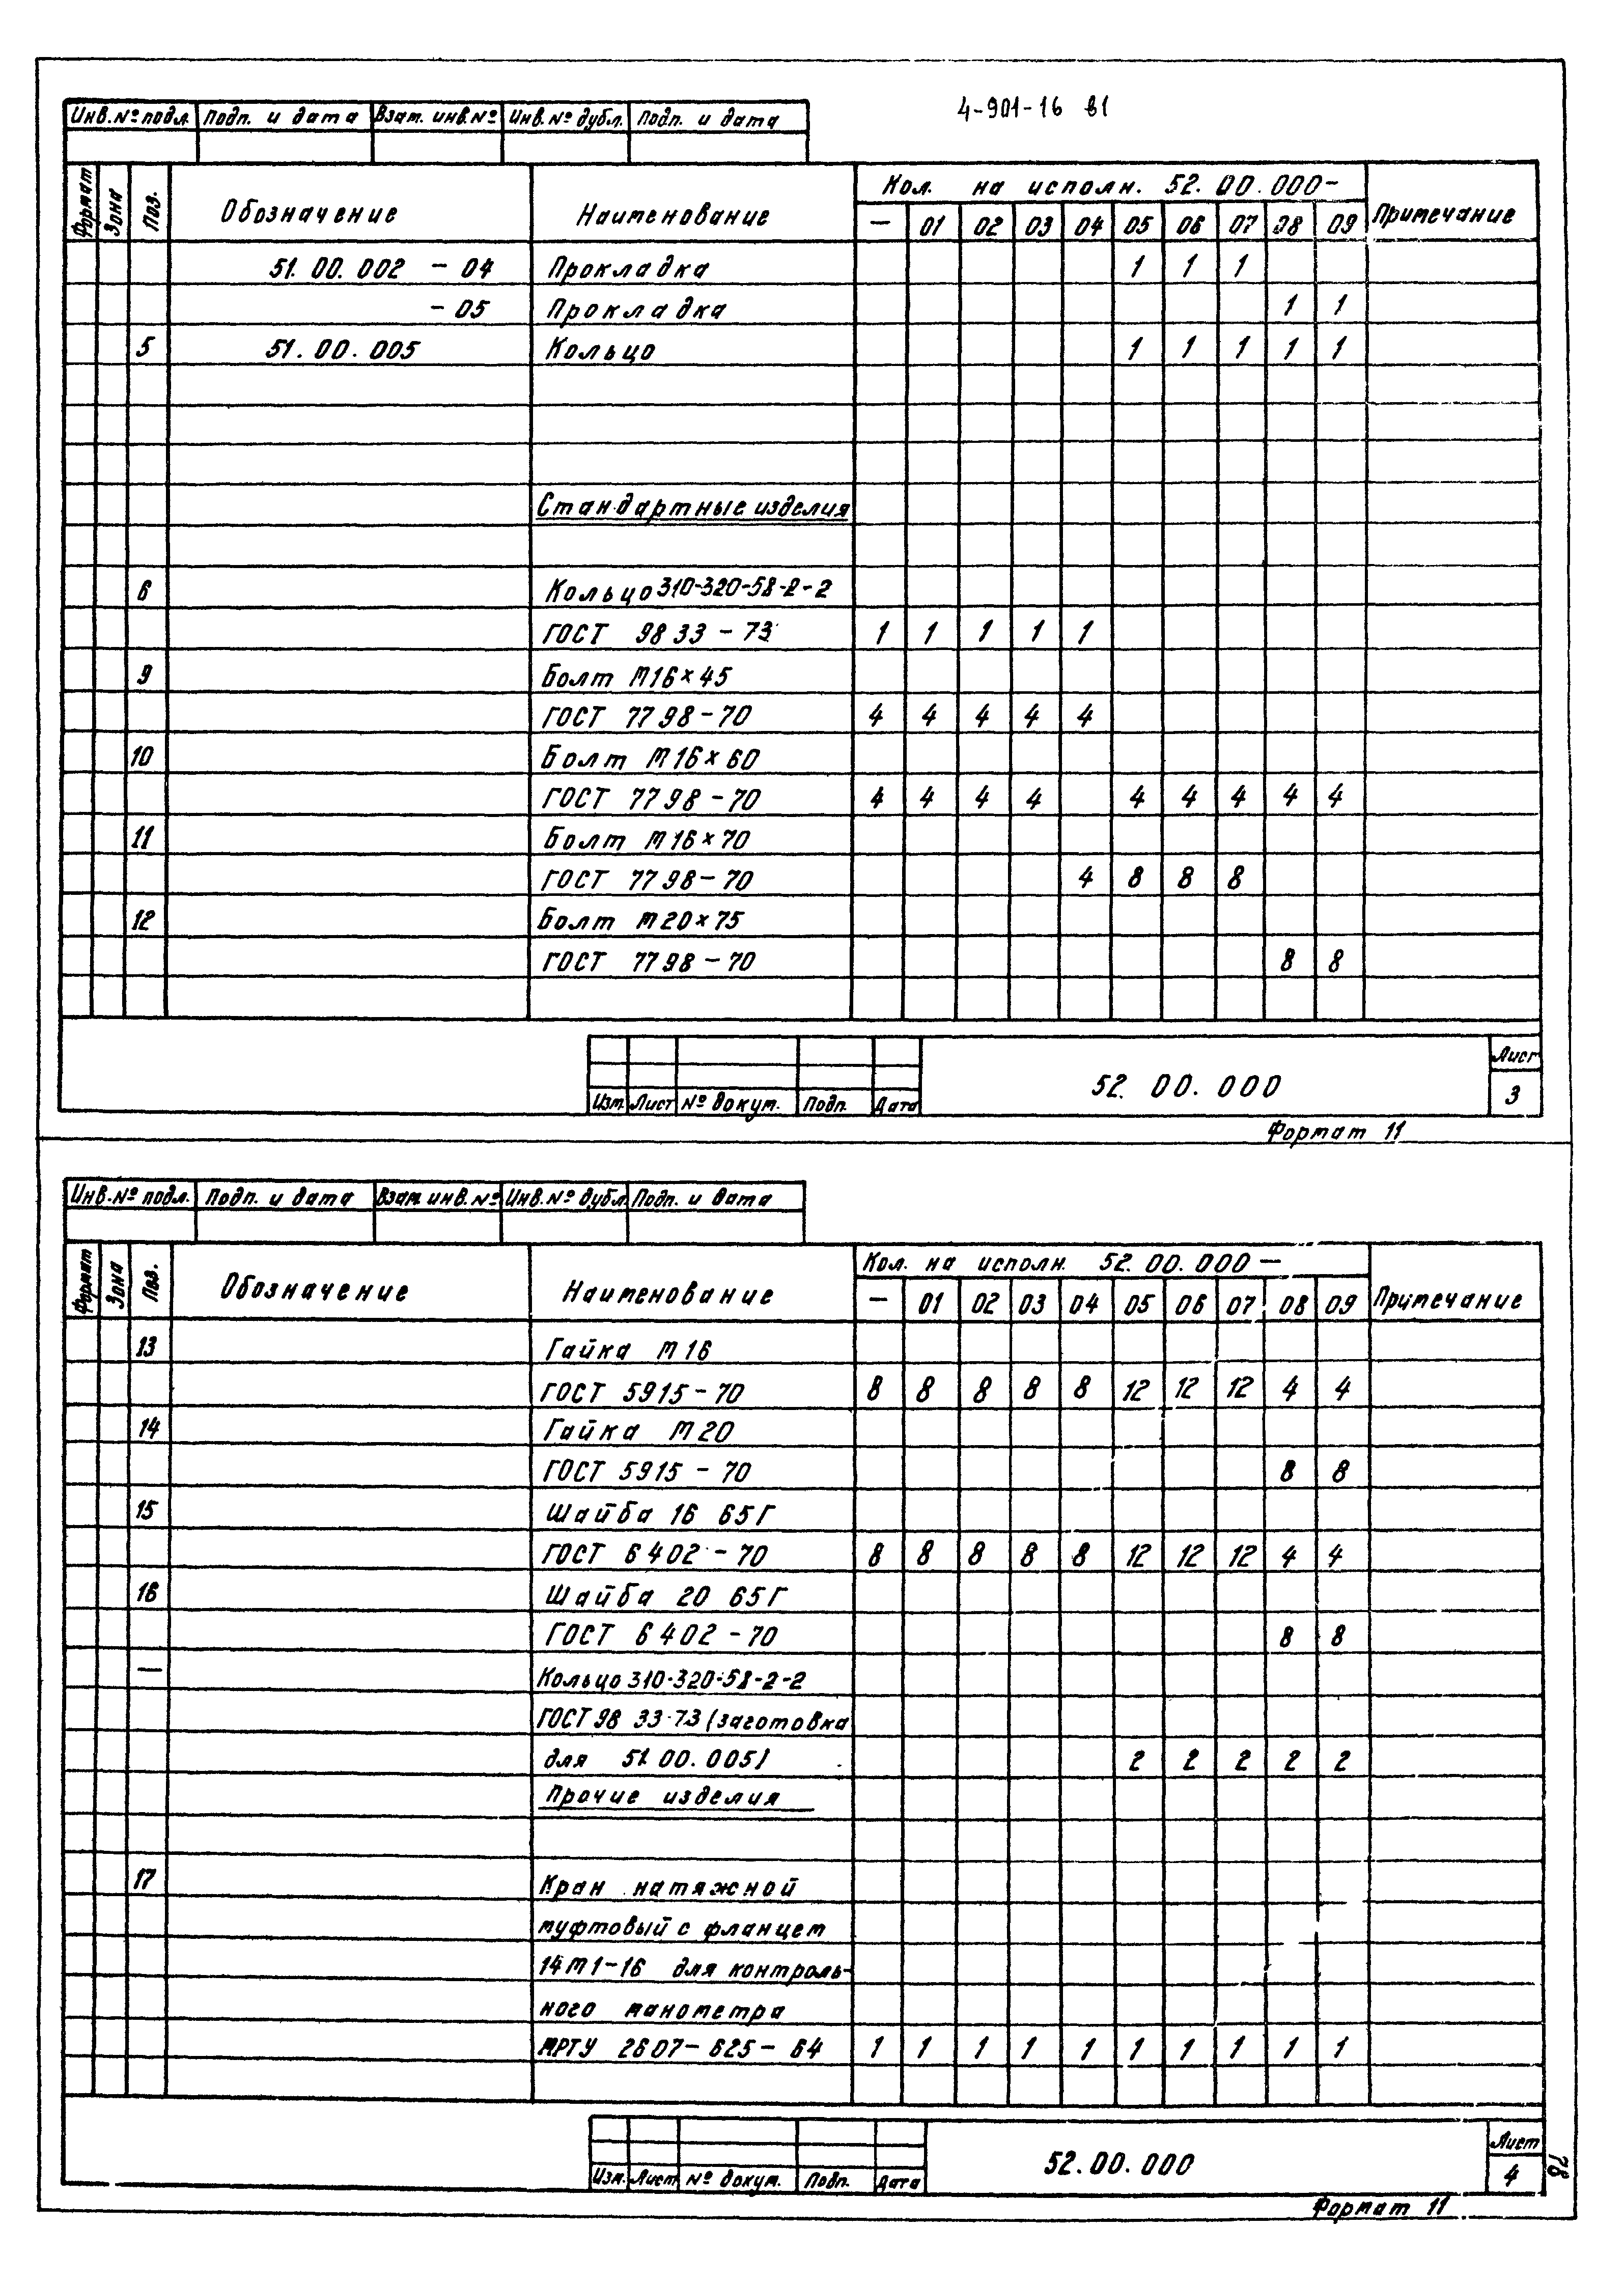 4-901-16 в1
Инв.№ подл. Подп. и дата Взам. инв.№ Инв.№ дубл. Подп. и дата
Формат Зона Поз. Обозначение Наименование Кол. на исполн. 52.00.000- Примечание
— 01 02 03 04 05 06 07 08 09
51.00.002 - 04 Прокладка 1 1 1
- 05 Прокладка 1 1
5 51.00.005 Кольцо 1 1 1 1 1
Стандартные изделия
6 Кольцо 310-320-58-2-2
ГОСТ 9833-73 1 1 1 1 1
9 Болт М16×45
ГОСТ 7798-70 4 4 4 4 4
10 Болт М16×60
ГОСТ 7798-70 4 4 4 4 4 4 4 4 4
11 Болт М16×70
ГОСТ 7798-70 4 8 8 8
12 Болт М20×75
ГОСТ 7798-70 8 8
52.00.000 Лист
Изм. Лист № докум. Подп. Дата 3
Формат 11
Инв.№ подл. Подп. и дата Взам. инв.№ Инв.№ дубл. Подп. и дата
Формат Зона Поз. Обозначение Наименование Кол. на исполн. 52.00.000 — Примечание
— 01 02 03 04 05 06 07 08 09
13 Гайка М16
ГОСТ 5915-70 8 8 8 8 8 12 12 12 4 4
14 Гайка М20
ГОСТ 5915-70 8 8
15 Шайба 16 65Г
ГОСТ 6402-70 8 8 8 8 8 12 12 12 4 4
16 Шайба 20 65Г
ГОСТ 6402-70 8 8
— Кольцо 310-320-58-2-2
ГОСТ 9833-73 (заготовка
для 51.00.005) 2 2 2 2 2
Прочие изделия
17 Кран натяжной
муфтовый с фланцем
14М1-16 для контроль-
ного манометра
МРТУ 2607-625-64 1 1 1 1 1 1 1 1 1 1
52.00.000 Лист
Изм. Лист № докум. Подп. Дата 4
Формат 11